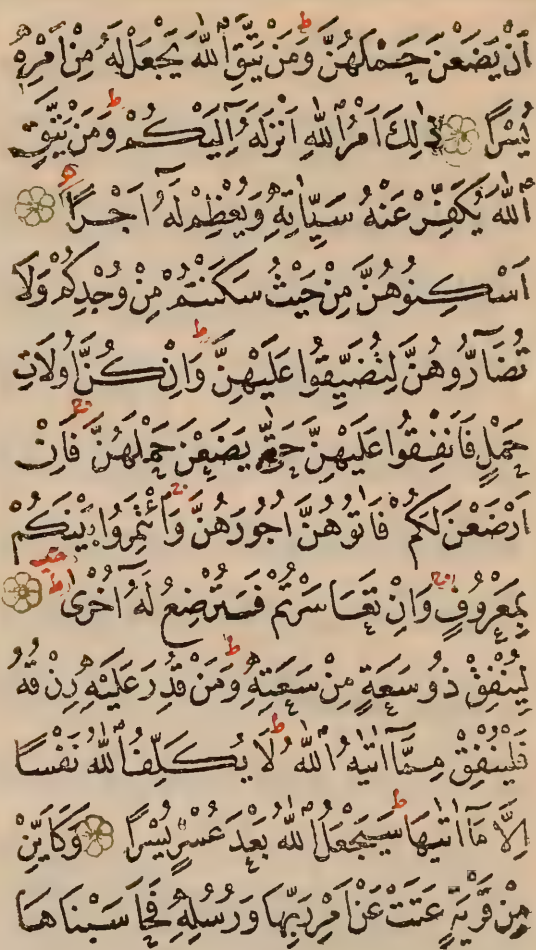 اَنْ يَضَعْنَ حَمْلَهُنَّ ط وَمَنْ يَتَّقِ اللّٰهَ يَجْعَلْ لَهُ مِنْ اَمْرِهِ
يُسْرًا ذٰلِكَ اَمْرُ اللّٰهِ اَنْزَلَهُ اِلَيْكُمْ ط وَمَنْ يَتَّقِ
اللّٰهَ يُكَفِّرْ عَنْهُ سَيِّاٰتِهِ وَيُعْظِمْ لَهُ اَجْرًا
اَسْكِنُوهُنَّ مِنْ حَيْثُ سَكَنْتُمْ مِنْ وُجْدِكُمْ وَلَا
تُضَآرُّوهُنَّ لِتُضَيِّقُوا عَلَيْهِنَّ ط وَاِنْ كُنَّ اُولَاتِ
حَمْلٍ فَاَنْفِقُوا عَلَيْهِنَّ حَتّٰى يَضَعْنَ حَمْلَهُنَّ ج فَاِنْ
اَرْضَعْنَ لَكُمْ فَاٰتُوهُنَّ اُجُورَهُنَّ ج وَأْتَمِرُوا بَيْنَكُمْ
بِمَعْرُوفٍ ج وَاِنْ تَعَاسَرْتُمْ فَسَتُرْضِعُ لَهُ اُخْرٰى ط
لِيُنْفِقْ ذُو سَعَةٍ مِنْ سَعَتِهِ ط وَمَنْ قُدِرَ عَلَيْهِ رِزْقُهُ
فَلْيُنْفِقْ مِمَّآ اٰتٰيهُ اللّٰهُ ط لَا يُكَلِّفُ اللّٰهُ نَفْسًا
اِلَّا مَآ اٰتٰيهَا ط سَيَجْعَلُ اللّٰهُ بَعْدَ عُسْرٍ يُسْرًا وَكَاَيِّنْ
مِنْ قَرْيَةٍ عَتَتْ عَنْ اَمْرِ رَبِّهَا وَرُسُلِهِ فَحَاسَبْنَاهَا